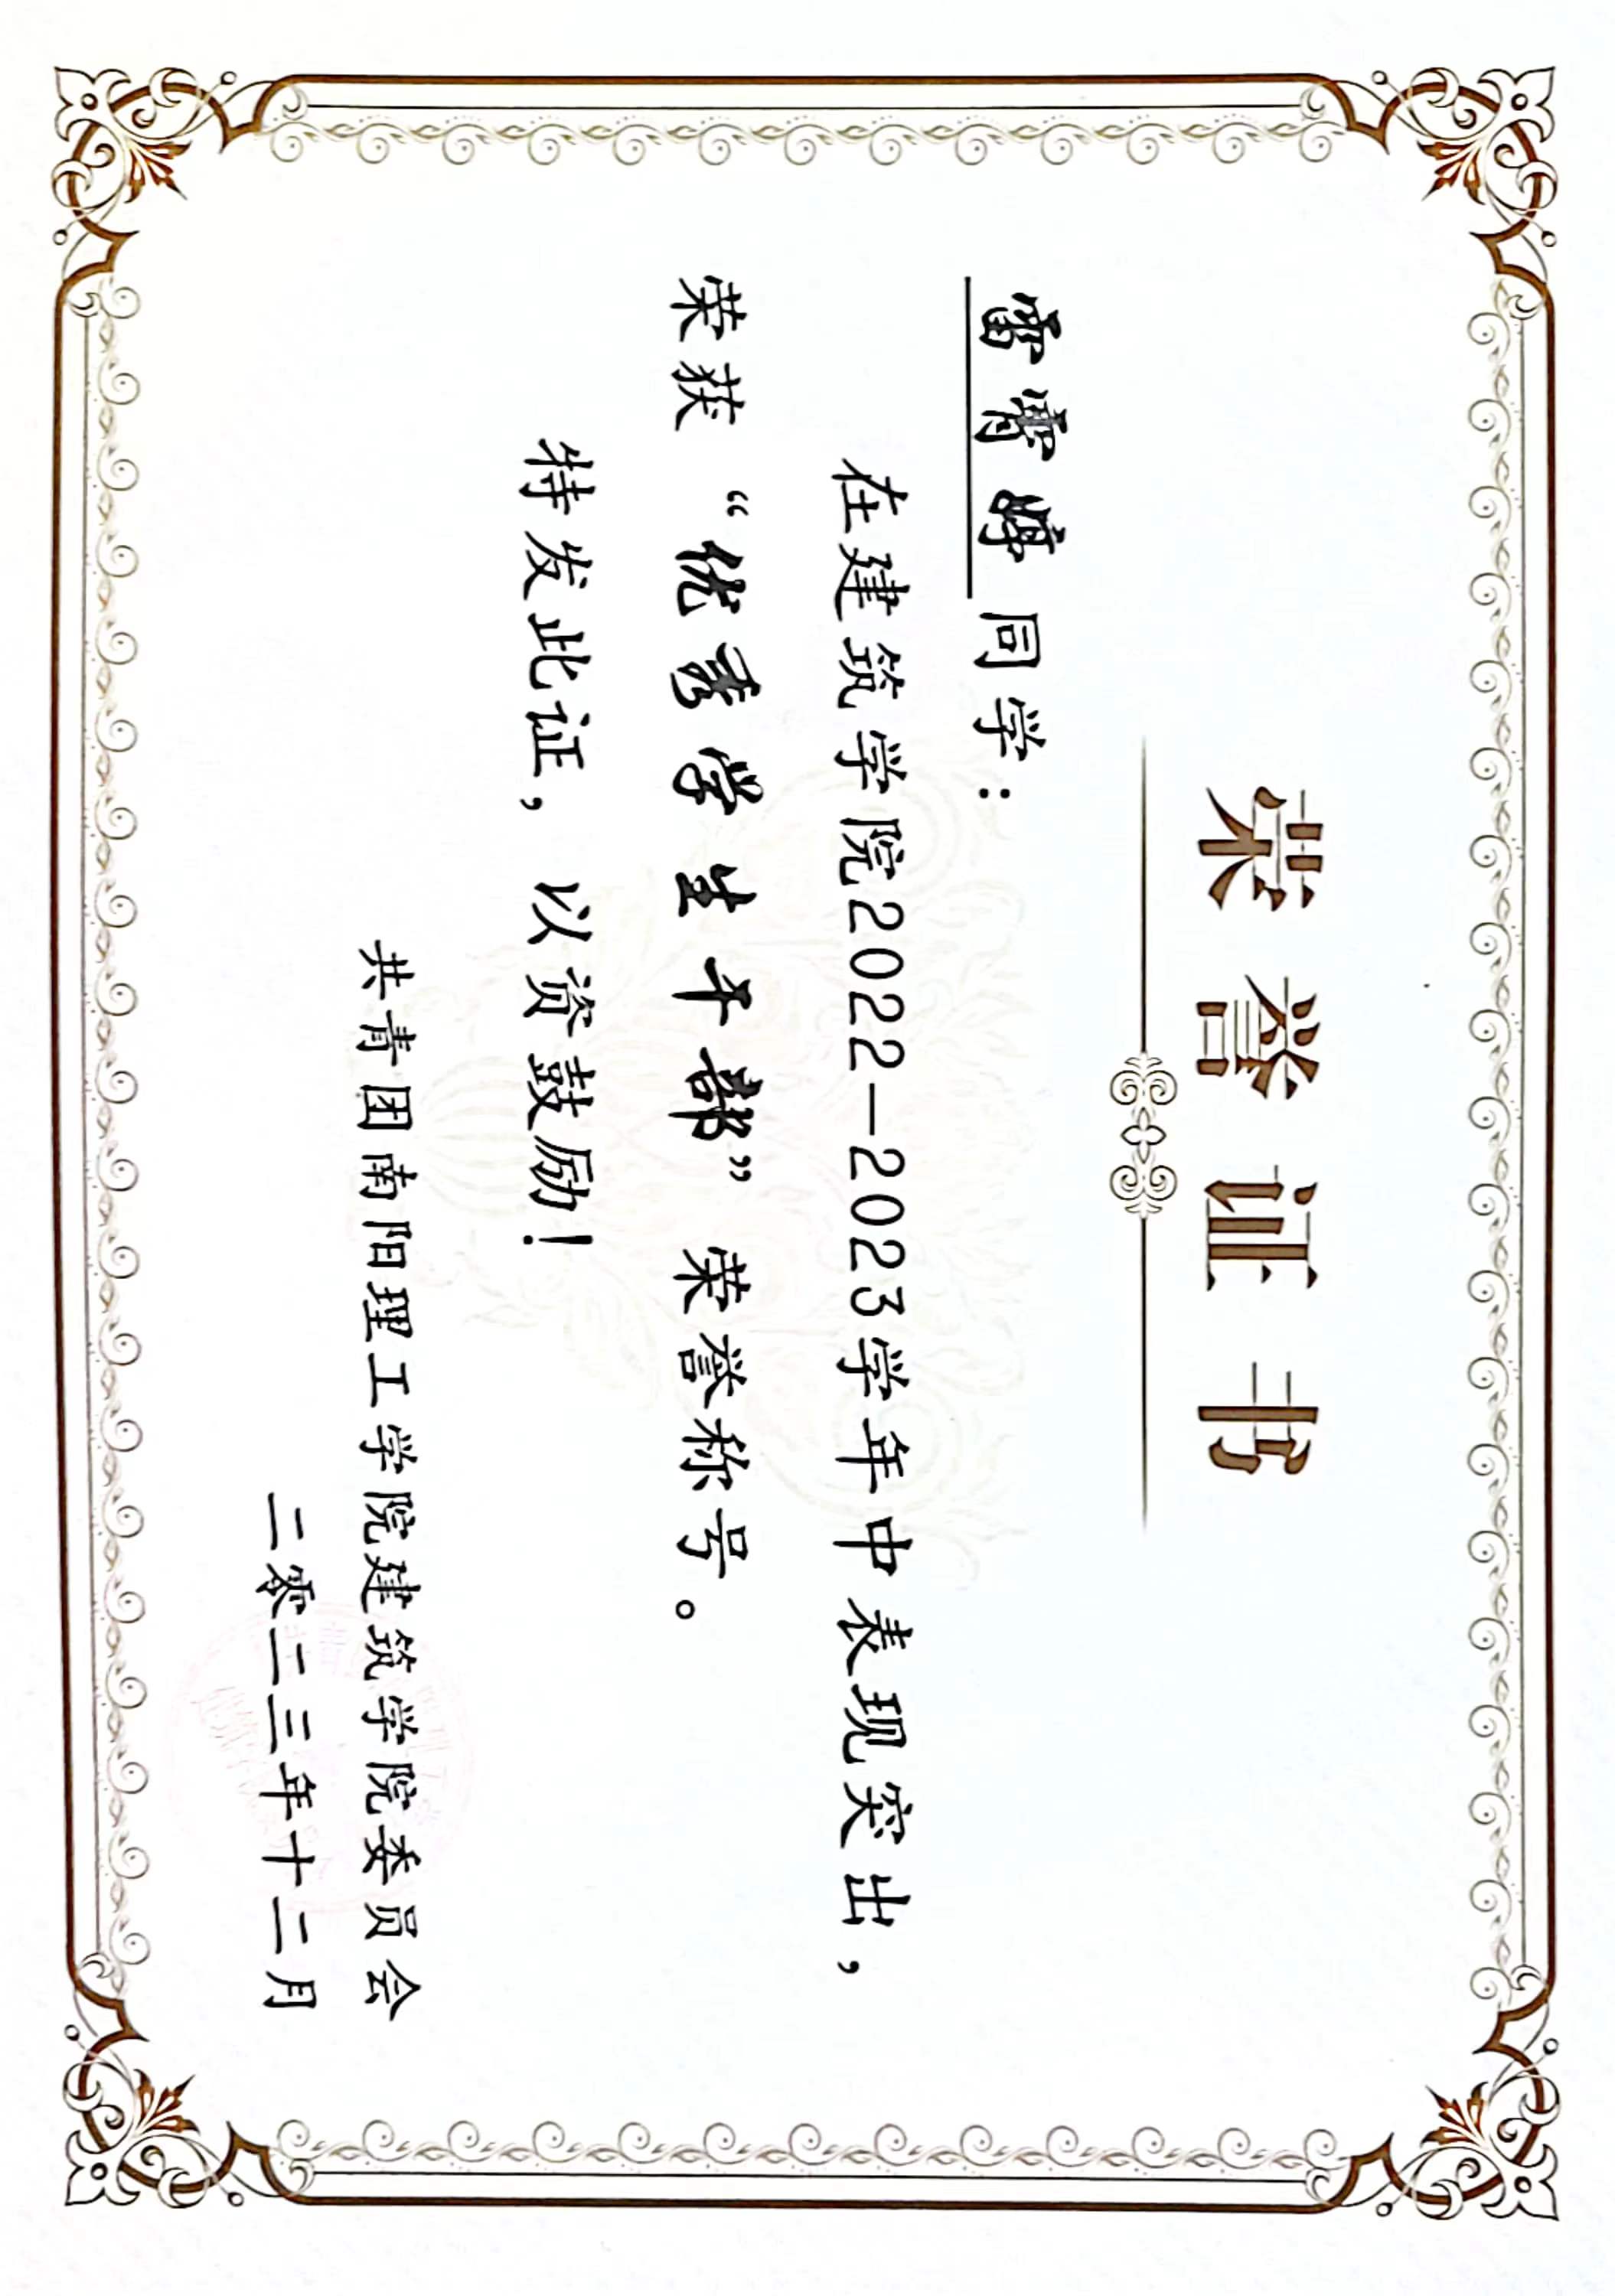 荣誉证书
同学：
在建筑学院2022—2023学年中表现突出，
荣获“优秀学生干部”荣誉称号。
特发此证，以资鼓励！
共青团南阳理工学院建筑学院委员会
二零二三年十二月